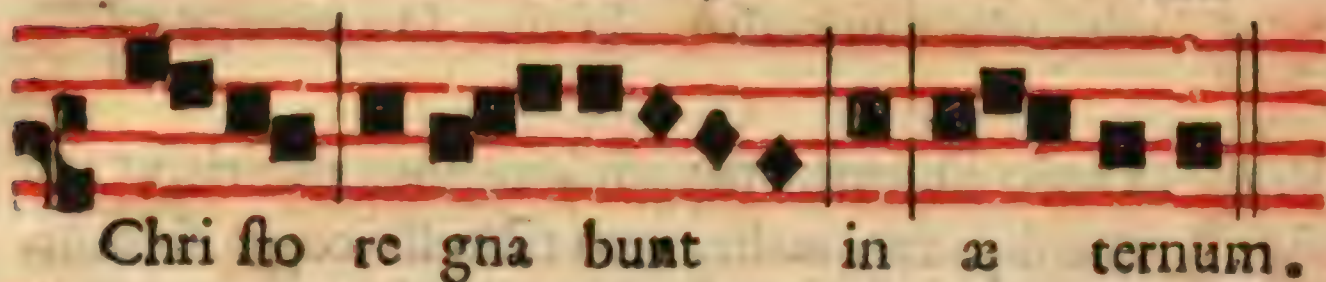 Chri ſto re gna bunt in æ ternum.